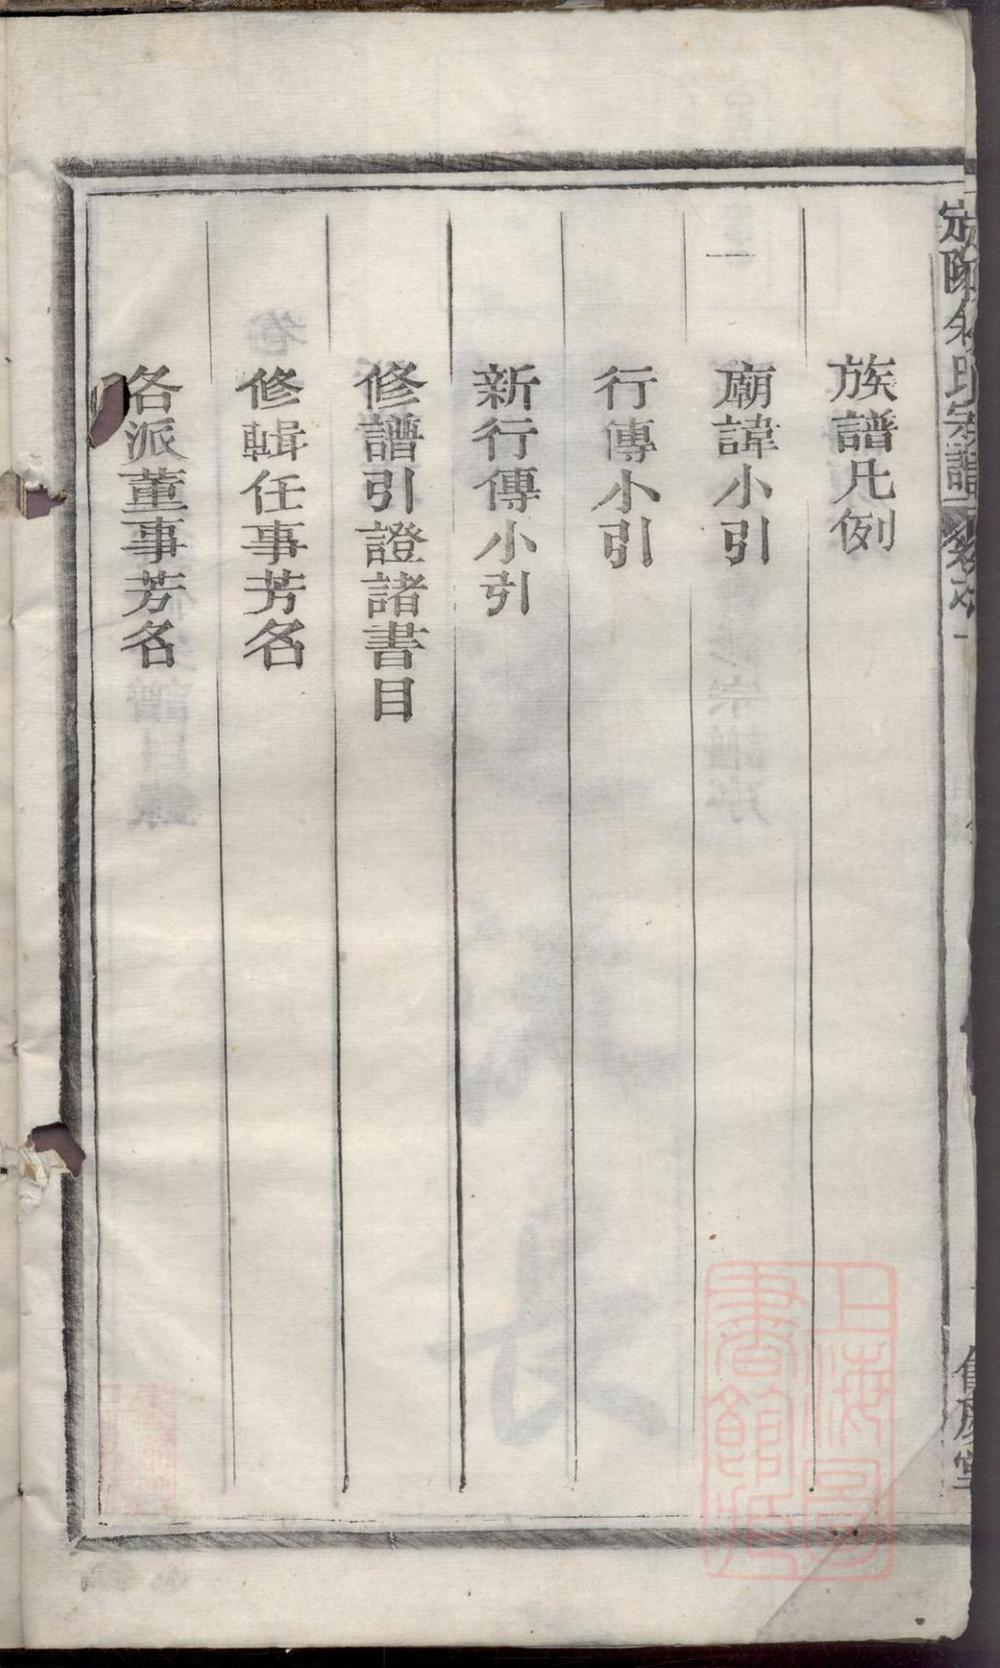 族譜凡例
廟諱小引
行傳小引
新行傳小引
修譜引證諸書目
修輯任事芳名
各派董事芳名
上海圖書館藏